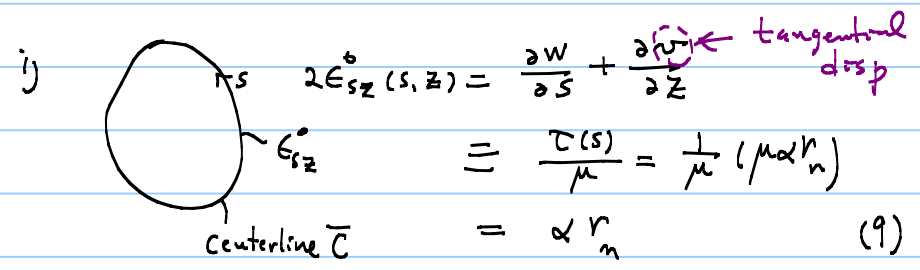 i) 2ϵ°sz (s, z) = ∂w/∂s + ∂v/∂z ← tangential disp
s
ϵ°sz
≡ τ(s)/μ = 1/μ (μαr_n)
centerline C̅
= α r_n (9)